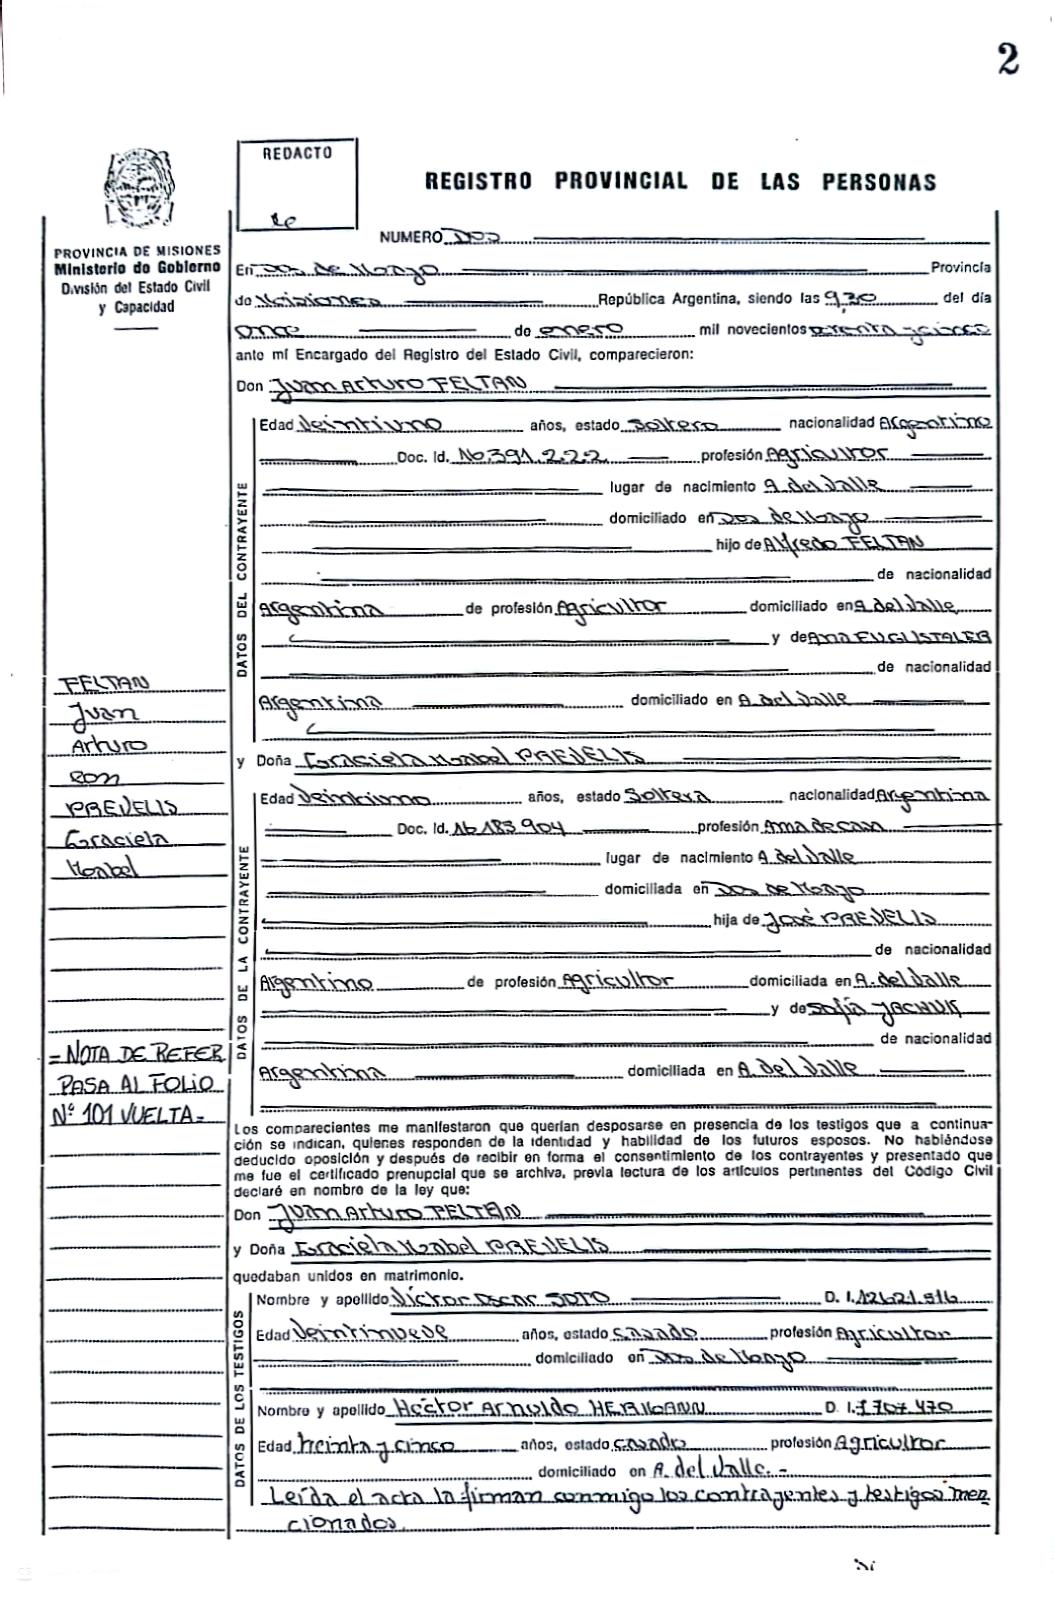 2
REDACTO
REGISTRO PROVINCIAL DE LAS PERSONAS
NUMERO Dos
PROVINCIA DE MISIONES
Ministerio de Gobierno
División del Estado Civil
y Capacidad
En Dos de Mayo Provincia
de Misiones República Argentina, siendo las 9,30 del día
once de enero mil novecientos
ante mí Encargado del Registro del Estado Civil, comparecieron:
Don Juan Arturo FELTAN
DATOS DEL CONTRAYENTE
Edad Veintiuno años, estado Soltero nacionalidad Argentino
Doc. Id. 16.391.222 profesión Agricultor
lugar de nacimiento A. del Valle
domiciliado en Dos de Mayo
hijo de Alfredo FELTAN
de nacionalidad
Argentina de profesión Agricultor domiciliado en A. del Valle
y de Ana
de nacionalidad
Argentina domiciliado en A. del Valle
y Doña Graciela Mabel PREVELIS
DATOS DE LA CONTRAYENTE
Edad Veintiuno años, estado Soltera nacionalidad Argentina
Doc. Id. 16.183.904 profesión Ama de casa
lugar de nacimiento A. del Valle
domiciliada en Dos de Mayo
hija de José PREVELIS
de nacionalidad
Argentino de profesión Agricultor domiciliada en A. del Valle
y de Sofía
de nacionalidad
Argentina domiciliada en A. del Valle
FELTAN
Juan
Arturo
con
PREVELIS
Graciela
Mabel
= NOTA DE REFER
PASA AL FOLIO
Nº 101 VUELTA =
Los comparecientes me manifestaron que querían desposarse en presencia de los testigos que a continua-
ción se indican, quienes responden de la identidad y habilidad de los futuros esposos. No habiéndose
deducido oposición y después de recibir en forma el consentimiento de los contrayentes y presentado que
me fue el certificado prenupcial que se archiva, previa lectura de los artículos pertinentes del Código Civil
declaré en nombre de la ley que:
Don Juan Arturo FELTAN
y Doña Graciela Mabel PREVELIS
quedaban unidos en matrimonio.
DATOS DE LOS TESTIGOS
Nombre y apellido Víctor Oscar SOTO D. I. 12.621.516
Edad Veintinueve años, estado casado profesión Agricultor
domiciliado en Dos de Mayo
Nombre y apellido Héctor Arnoldo HERMANN D. I. 7.707.470
Edad treinta y cinco años, estado casado profesión Agricultor
domiciliado en A. del Valle. -
Leída el acta la firman conmigo los contrayentes y testigos men
cionados